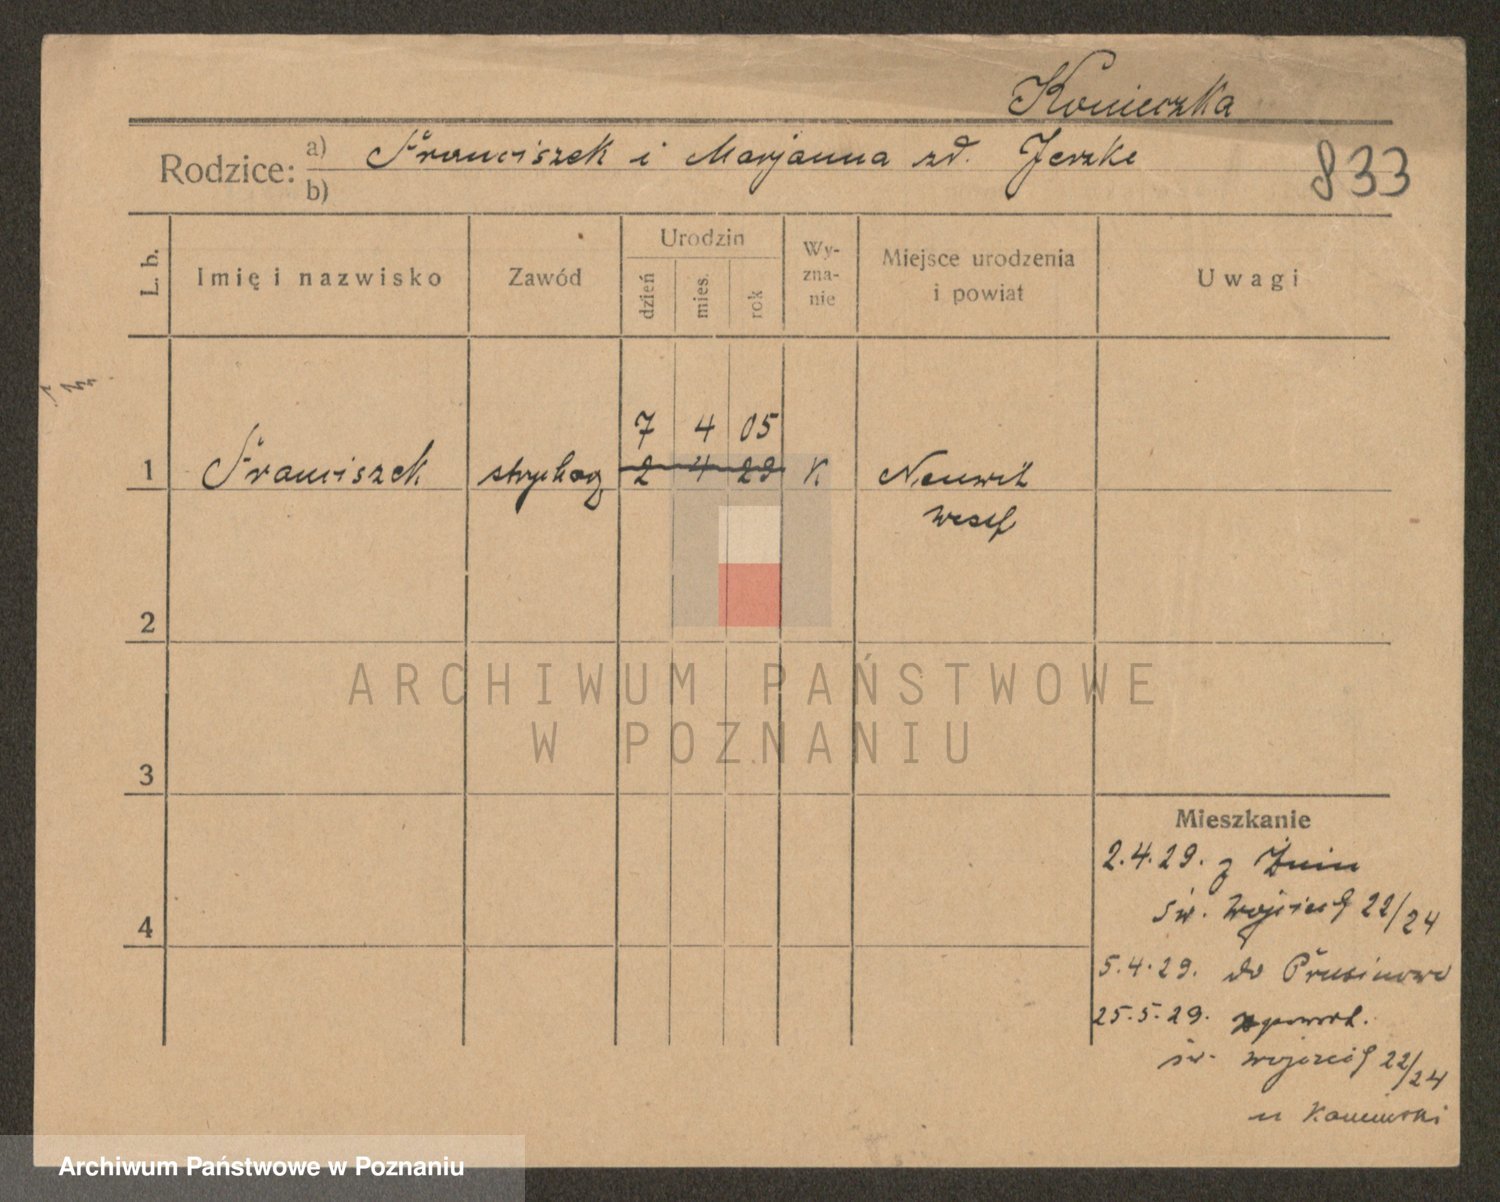 Konieczka
Rodzice: a) Franciszek i Marjanna zd. Jeszke
b)
833
L. b.
Imię i nazwisko
Zawód
Urodzin
dzień
mies.
rok
Wy-
zna-
nie
Miejsce urodzenia
i powiat
Uwagi
7 4 05
1 Franciszek 2 4 29 K
Westf
2
ARCHIWUM PAŃSTWOWE
W POZNANIU
3
Mieszkanie
2.4.29. z Żnin
św. Wojciech 22/24
4
5.4.29. do Prusinowo
25.5.29. zpowrot.
św. Wojciech 22/24
u Kamiński
Archiwum Państwowe w Poznaniu